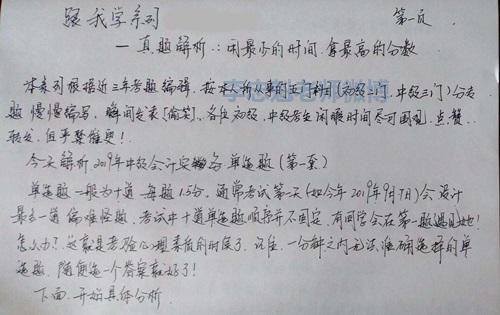 跟我学系列
第一页
一真题解析:用最少的时间.拿最高的分数
本系列根据近三年考题编辑,按本人所从事的五门科目(初级二门,中级三门)分专
题慢慢编写,瞬间走来[偷笑],各位初级、中级考生闲暇时间尽可围观、点赞、
转发,但严禁催更!
今天解析2019年中级会计实务 单选题(第一套)
单选题一般为十道 每题1.5分,通常考试第一天(如今年2019年9月7日)会设计
最多一道偏难怪题,考试中十道单选题顺序并不固定,有同学会在第一题遇见她!
怎么办?这就是考验心理素质的时候了,记住,一分钟之内无法准确选择的单
选题,随便选一个答案就好了!
下面,开始具体分析.